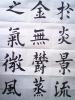 於炎景流
金無鬱蒸
之氣微風